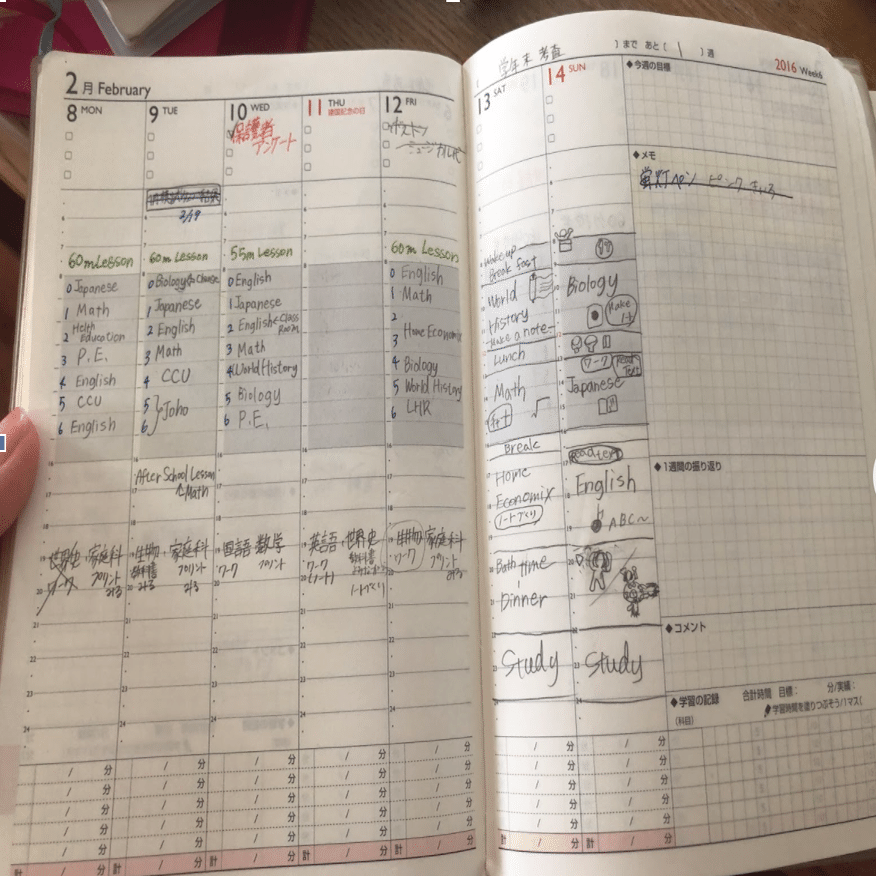 2月 February
8 MON
9 TUE
10 WED
11 THU
建国記念の日
12 FRI
保護者
アンケート
3/19
60m Lesson
0 Japanese
1 Math
2 Helth
Education
3 P.E.
4 English
5 CCU
6 English
世界史
ワーク
家庭科
プリント
みる
60m Lesson
0 Biology
1 Japanese
2 English
3 Math
4 CCU
5
6
Joho
After School Lesson
Math
生物
教科書
みる
家庭科
プリント
みる
55m Lesson
0 English
1 Japanese
2 English
Class
Room
3 Math
4 World History
5 Biology
6 P.E.
国語
ワーク
数学
プリント
英語
ワーク
(ノート)
世界史
教科書
ノートづくり
60m Lesson
0 English
1 Math
2
3
Home Economix
4 Biology
5 World History
6 LHR
生物
ワーク
家庭科
プリント
みる
学年末 考査
)まで あと( 1 )週
2016 Week6
13 SAT
14 SUN
Wake up
Break fast
World
History
-Make a note-
Lunch
Math
Break
Home
Economix
ノートづくり
Bath time
Dinner
Study
Biology
Make
ノート
ワーク
Read
Text
Japanese
Read text
English
ABC~
Study
◆今週の目標
◆メモ
蛍灯ペン ピンク きいろ
◆1週間の振り返り
◆コメント
◆学習の記録
合計時間 目標: 分/実績:
(科目)
学習時間を塗りつぶそう/1マス(
/ 分
計 / 分